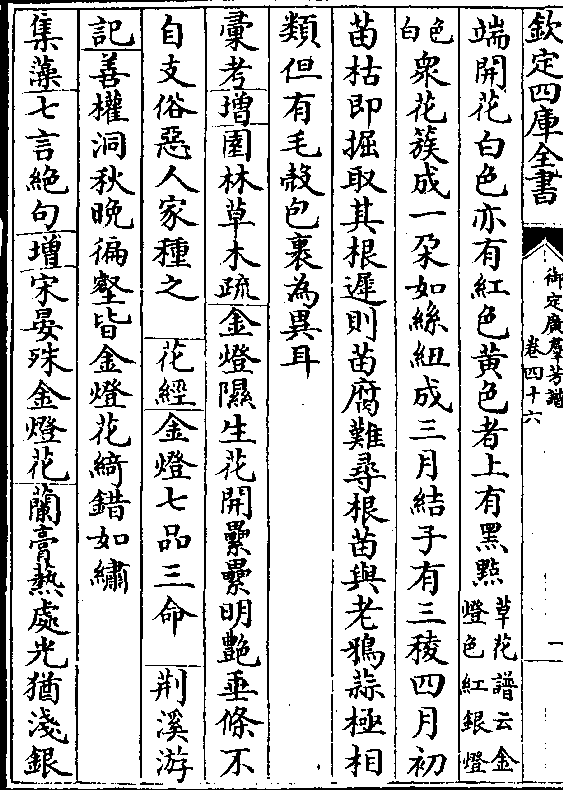 欽定四庫全書
御定廣羣芳譜
卷四十六
一
端開花白色亦有紅色黄色者上有黑點草花譜云金燈色紅銀燈
色白衆花簇成一朶如絲紐成三月結子有三稜四月初
苗枯即掘取其根遲則苗腐難尋根苗與老鴉蒜極相
類但有毛殻包裹為異耳
彚考增園林草木疏金燈隰生花開纍纍明艷垂條不
自支俗惡人家種之 花經金燈七品三命 荆溪游
記善權洞秋晚徧壑皆金燈花綺錯如繡
集藻七言絶句增宋晏殊金燈花蘭膏熱處光猶淺銀